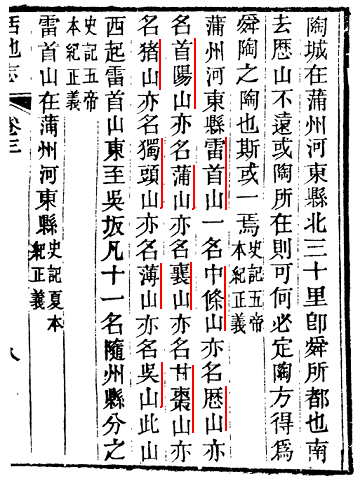 陶城在蒲州河東縣北三十里卽舜所都也南
去歴山不遠或陶所在則可何必定陶方得爲
舜陶之陶也斯或一焉史記五帝
本紀正義
蒲州河東縣雷首山一名中條山亦名歴山亦
名首陽山亦名蒲山亦名襄山亦名甘棗山亦
名猪山亦名獨頭山亦名薄山亦名吳山此山
西起雷首山東至吳坂凡十一名隨州縣分之
史記五帝
本紀正義
雷首山在蒲州河東縣史記夏本
紀正義
括地志 卷三 八